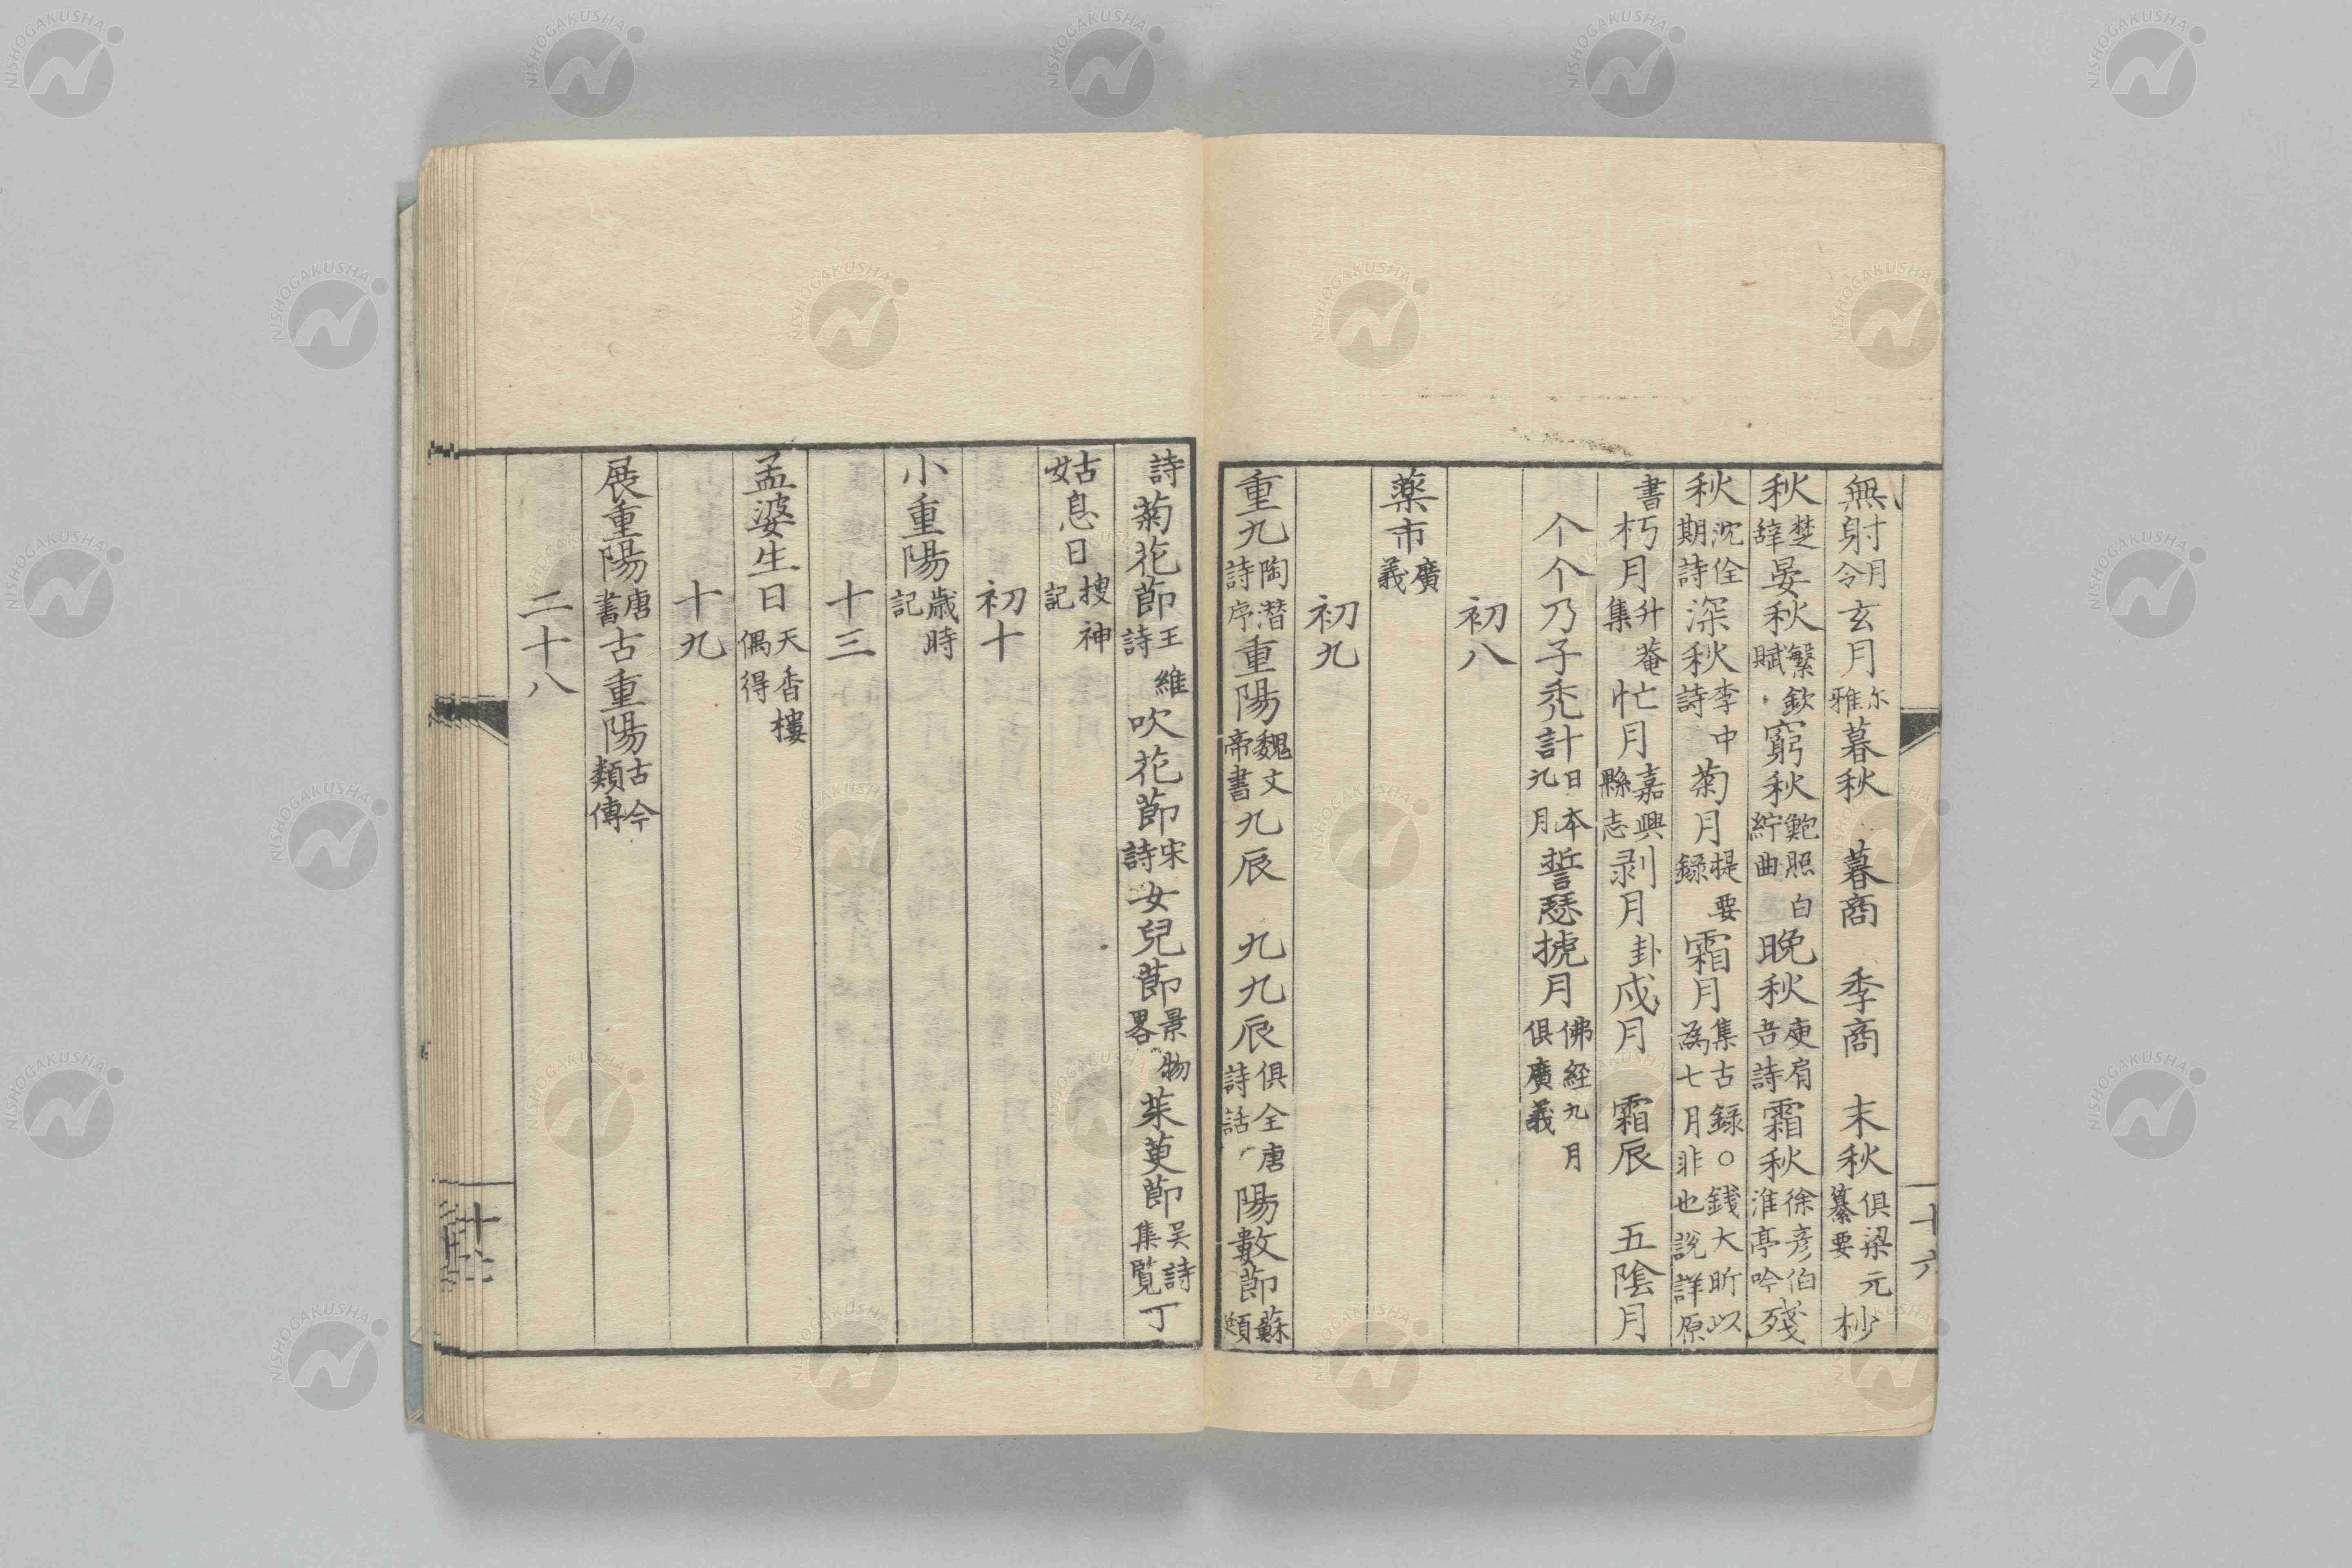 無射月令玄月尓雅暮秋 暮商 季商 末秋俱梁元纂要杪
秋楚辞晏秋繁欽賦窮秋鮑照白紵曲晩秋庾肩吾詩霜秋徐彦伯淮亭吟殘
秋沈佺期詩深秋李中詩菊月提要録霜月集古録○銭大昕以為七月非也説詳原
書朽月升菴集忙月嘉興縣志剥月卦戌月 霜辰 五陰月
个个乃子禿計日本九月誓瑟搋月佛経九月俱廣義
初八
薬市廣義
初九
重九陶潜詩序重陽魏文帝書九辰 九九辰俱全唐詩話陽數節蘇頲
詩菊花節王維詩吹花節宋詩女兒節景物畧茱萸節呉詩集覧丁
女古息日搜神記
初十
小重陽歳時記
十三
孟婆生日天香樓偶得
十九
展重陽唐書古重陽古今類傳
二十八
十六
NISHOGAKUSHA